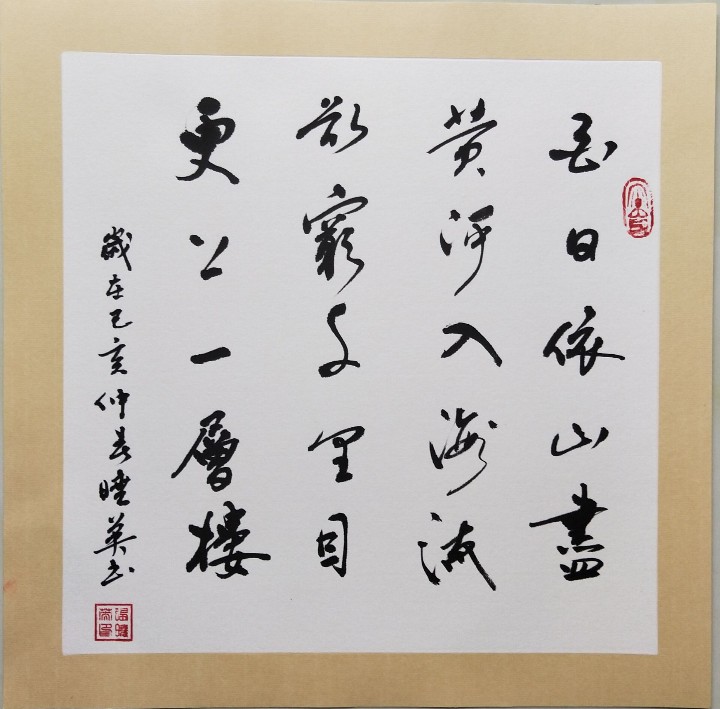 白日依山盡
黄河入海流
欲窮千里目
更上一層樓
歲在己亥仲春曉英书